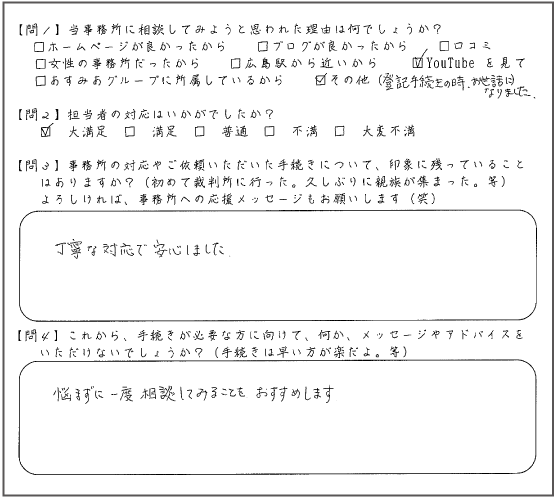 【問1】当事務所に相談してみようと思われた理由は何でしょうか？
□ホームページが良かったから □ブログが良かったから □口コミ
□女性の事務所だったから □広島駅から近いから ☑YouTubeを見て
□あすみあグループに所属しているから ☑その他（登記手続きの時、お世話に
なりました。
【問2】担当者の対応はいかがでしたか？
☑ 大満足 □ 満足 □ 普通 □ 不満 □ 大変不満
【問3】事務所の対応やご依頼いただいた手続きについて、印象に残っていること
はありますか？（初めて裁判所に行った。久しぶりに親族が集まった。等）
よろしければ、事務所への応援メッセージもお願いします（笑）
丁寧な対応で安心しました。
【問4】これから、手続きが必要な方に向けて、何か、メッセージやアドバイスを
いただけないでしょうか？（手続きは早い方が楽だよ。等）
悩まずに一度相談してみることをおすすめします